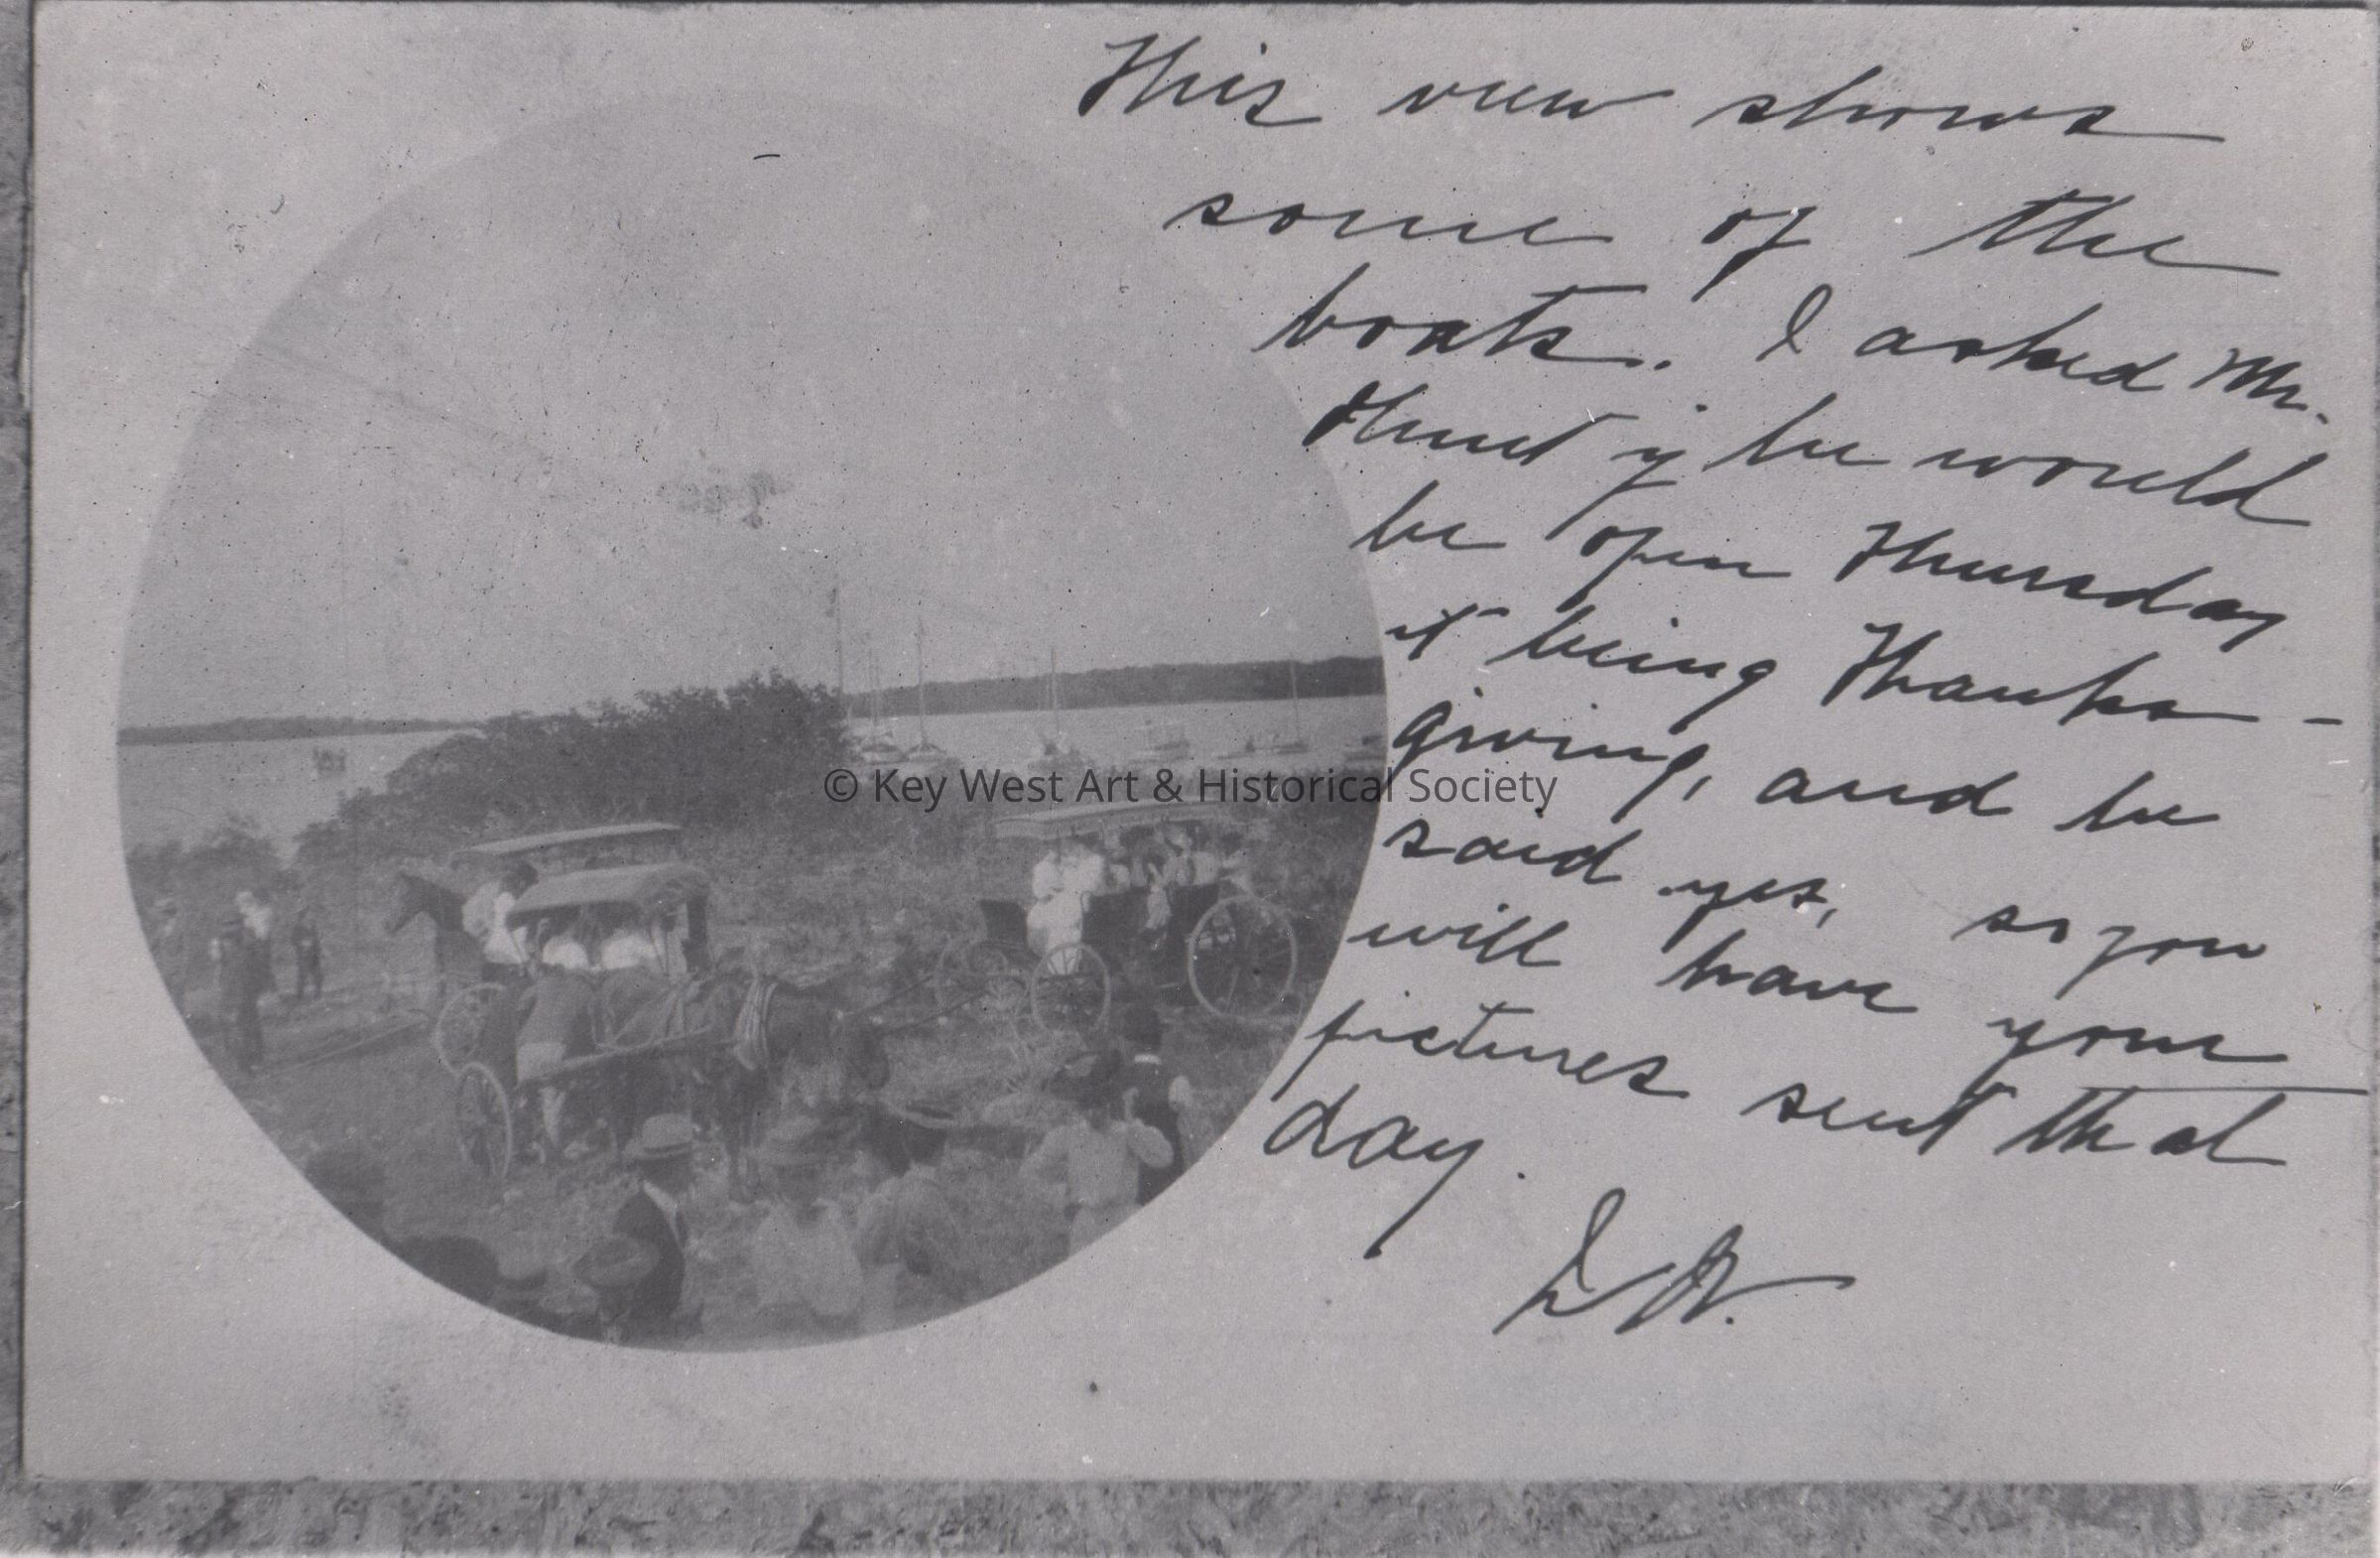 This view shows
some of the
boats. I asked Mr.
if he would
be open Thursday
it being Thanks-
giving, and he
said yes, so you
will have your
pictures sent that
day.
© Key West Art & Historical Society